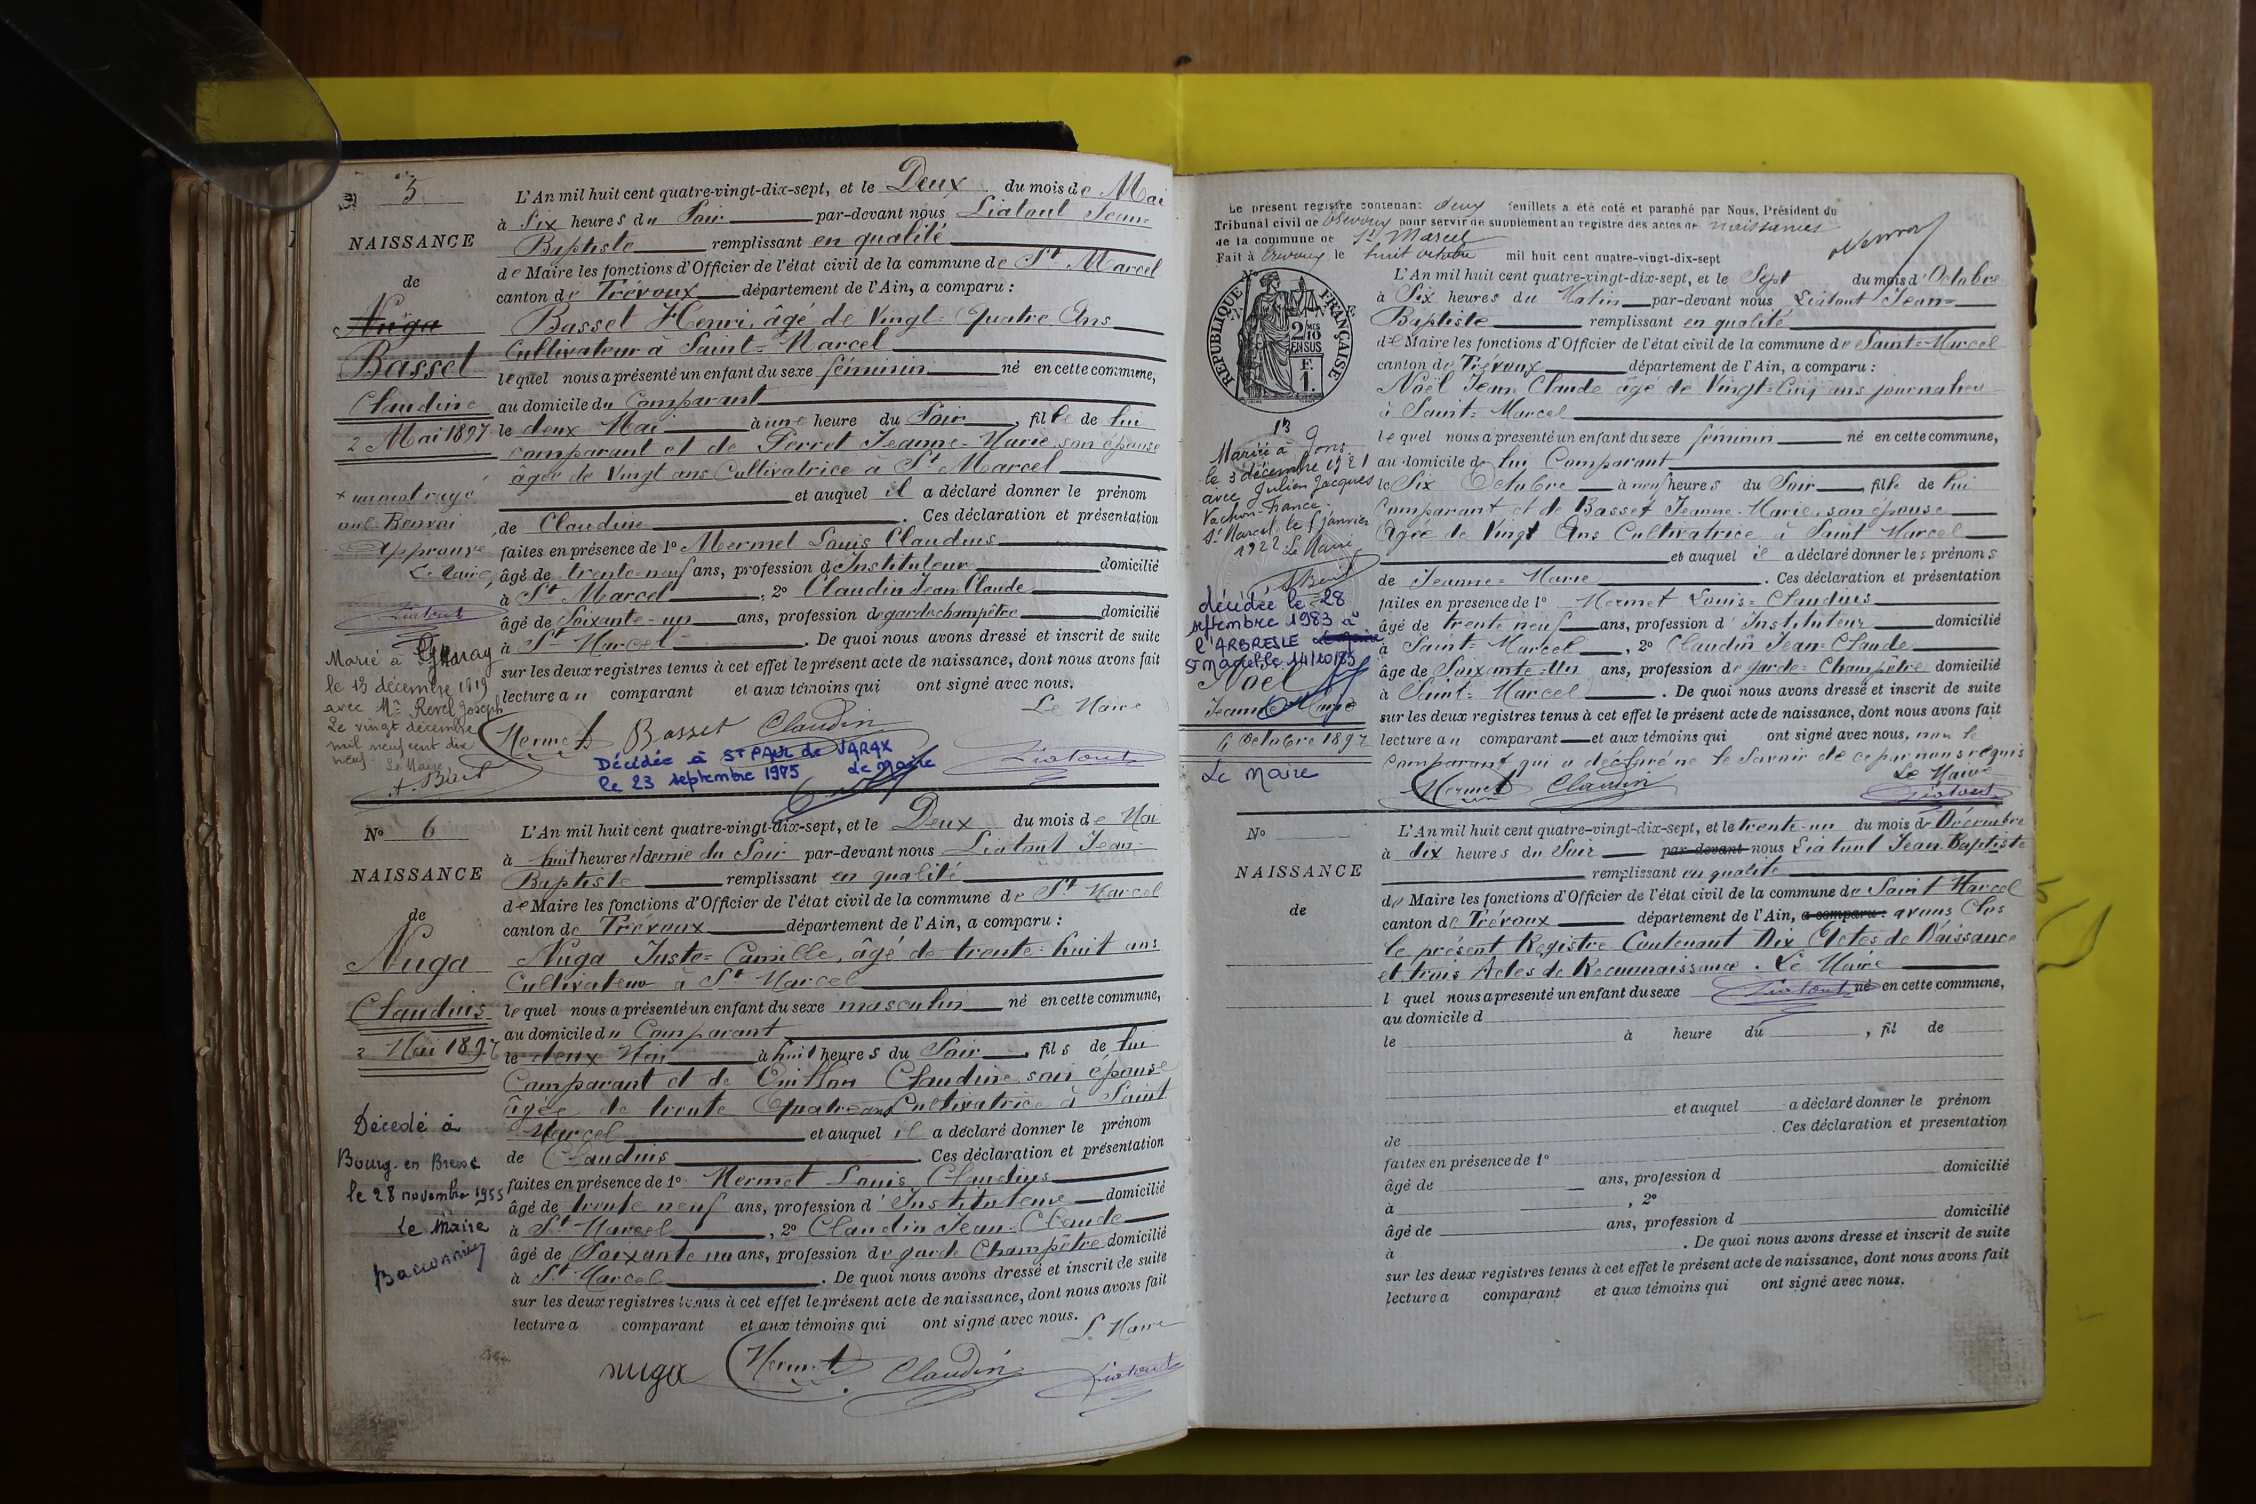 5
NAISSANCE
de
Nuga
Basset
Claudine
2 Mai 1897
L'An mil huit cent quatre-vingt-dix-sept, et le Deux du mois de Mai
à Six heures du Soir par-devant nous Liatout Jean
Baptiste remplissant en qualité
de Maire les fonctions d'Officier de l'état civil de la commune de St Marcel
canton de Trévoux département de l'Ain, a comparu :
Basset Henri, âgé de Vingt-Quatre Ans
Cultivateur à Saint-Marcel
lequel nous a présenté un enfant du sexe féminin né en cette commune,
au domicile du Comparant
le deux Mai à une heure du Soir, fille de lui
comparant et de Perret Jeanne-Marie son épouse
âgée de Vingt ans Cultivatrice à St Marcel
et auquel il a déclaré donner le prénom
de Claudine. Ces déclaration et présentation
faites en présence de 1° Mermet Louis Claudius
âgé de trente-neuf ans, profession d'Instituteur domicilié
à St Marcel, 2° Claudin Jean Claude
âgé de Soixante-un ans, profession de garde champêtre domicilié
à St Marcel. De quoi nous avons dressé et inscrit de suite
sur les deux registres tenus à cet effet le présent acte de naissance, dont nous avons fait
lecture au comparant et aux témoins qui ont signé avec nous.
Le Maire
Mermet Basset Claudin Liatout
un mot rayé
Approuvé
Le Maire,
Liatout
Marié à
le 13 décembre 1919
avec Mr Revel Joseph
Le vingt décembre
mil neuf cent dix
neuf Le Maire,
Décédée à ST PAUL de VARAX
le 23 septembre 1975 Le Maire
N° 6
NAISSANCE
de
Nuga
Claudius
2 Mai 1897
L'An mil huit cent quatre-vingt-dix-sept, et le Deux du mois de Mai
à huit heures et demie du Soir par-devant nous Liatout Jean-
Baptiste remplissant en qualité
de Maire les fonctions d'Officier de l'état civil de la commune de St Marcel
canton de Trévoux département de l'Ain, a comparu :
Nuga Juste-Camille, âgé de trente-huit ans
Cultivateur à St Marcel
lequel nous a présenté un enfant du sexe masculin né en cette commune,
au domicile du Comparant
le deux Mai à huit heures du Soir, fils de lui
Comparant et de Guillon Claudine son épouse
âgée de trente Quatre ans Cultivatrice à Saint
Marcel et auquel il a déclaré donner le prénom
de Claudius. Ces déclaration et présentation
faites en présence de 1° Mermet Louis Claudius
âgé de trente neuf ans, profession d'Instituteur domicilié
à St Marcel, 2° Claudin Jean-Claude
âgé de Soixante un ans, profession de garde Champêtre domicilié
à St Marcel. De quoi nous avons dressé et inscrit de suite
sur les deux registres tenus à cet effet le présent acte de naissance, dont nous avons fait
lecture a comparant et aux témoins qui ont signé avec nous.
Le Maire
nuga Mermet Claudin Liatout
Décédé à
Bourg-en Bresse
le 28 novembre 1955
Le Maire
Le présent registre contenant deux feuillets a été coté et paraphé par Nous, Président du
Tribunal civil de Trévoux pour servir de supplément au registre des actes de naissances
de la commune de St Marcel
Fait à Trévoux le huit octobre mil huit cent quatre-vingt-dix-sept
REPUBLIQUE FRANÇAISE
2/10 EN SUS
F. 1.
L'An mil huit cent quatre-vingt-dix-sept, et le Sept du mois d'Octobre
à Six heures du Matin par-devant nous Liatout Jean-
Baptiste remplissant en qualité
de Maire les fonctions d'Officier de l'état civil de la commune de Saint-Marcel
canton de Trévoux département de l'Ain, a comparu :
Noël Jean Claude âgé de Vingt-Cinq ans journalier
à Saint-Marcel
lequel nous a présenté un enfant du sexe féminin né en cette commune,
au domicile de lui Comparant
le Six Octobre à neuf heures du Soir, fille de lui
Comparant et de Basset Jeanne-Marie, son épouse
Agée de Vingt Ans Cultivatrice à Saint Marcel
et auquel il a déclaré donner les prénoms
de Jeanne-Marie. Ces déclaration et présentation
faites en présence de 1° Mermet Louis-Claudius
âgé de trente neuf ans, profession d'Instituteur domicilié
à Saint-Marcel, 2° Claudin Jean-Claude
âgé de Soixante-Un ans, profession de garde-Champêtre domicilié
à Saint-Marcel. De quoi nous avons dressé et inscrit de suite
sur les deux registres tenus à cet effet le présent acte de naissance, dont nous avons fait
lecture au comparant et aux témoins qui ont signé avec nous, non le
Comparant qui a déclaré ne le savoir de ce par nous requis
Le Maire
Mermet Claudin Liatout
13
Mariée à
le 3 décembre 1921
avec Julien Jacques
Vachon-France.
St Marcel, le 5 janvier
1922 Le Maire
décédée le 28
septembre 1983 à
l'ARBRESLE
St Marcel le 14/10/85
Noël
Jeanne Marie
6 Octobre 1897
Le Maire
N°
NAISSANCE
de
L'An mil huit cent quatre-vingt-dix-sept, et le trente-un du mois de Décembre
à dix heures du Soir par-devant nous Liatout Jean Baptiste
remplissant en qualité
de Maire les fonctions d'Officier de l'état civil de la commune de Saint Marcel
canton de Trévoux département de l'Ain, a comparu : avons Clos
le présent Registre Contenant Dix Actes de Naissance
et trois Actes de Reconnaissance. Le Maire
l quel nous a présenté un enfant du sexe Liatout né en cette commune,
au domicile d
le à heure du , fil de
et auquel a déclaré donner le prénom
de . Ces déclaration et présentation
faites en présence de 1°
âgé de ans, profession d domicilié
à , 2°
âgé de ans, profession d domicilié
à . De quoi nous avons dressé et inscrit de suite
sur les deux registres tenus à cet effet le présent acte de naissance, dont nous avons fait
lecture a comparant et aux témoins qui ont signé avec nous.